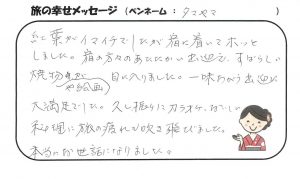 旅の幸せメッセージ（ペンネーム：タマヤマ）
紅葉がイマイチでしたが宿に着いてホッと
しました。宿の方々のあたたかい出迎え、すばらしい
焼物 や絵画 目に入りました。一味ちがう出迎に
大満足でした。久し振りにカラオケ、おいしい
料理に旅の疲れが吹き飛びました。
本当にお世話になりました。